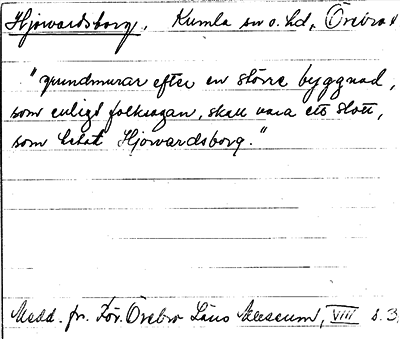 Hjorwardsborg, Kumla sn o. hd, Örebro l
"grundmurar efter en större byggnad,
som enligt folksagan, skall vara ett slott,
som hetat Hjorwardsborg."
Medd. fr. För. Örebro Läns Museum, VIII s. 3